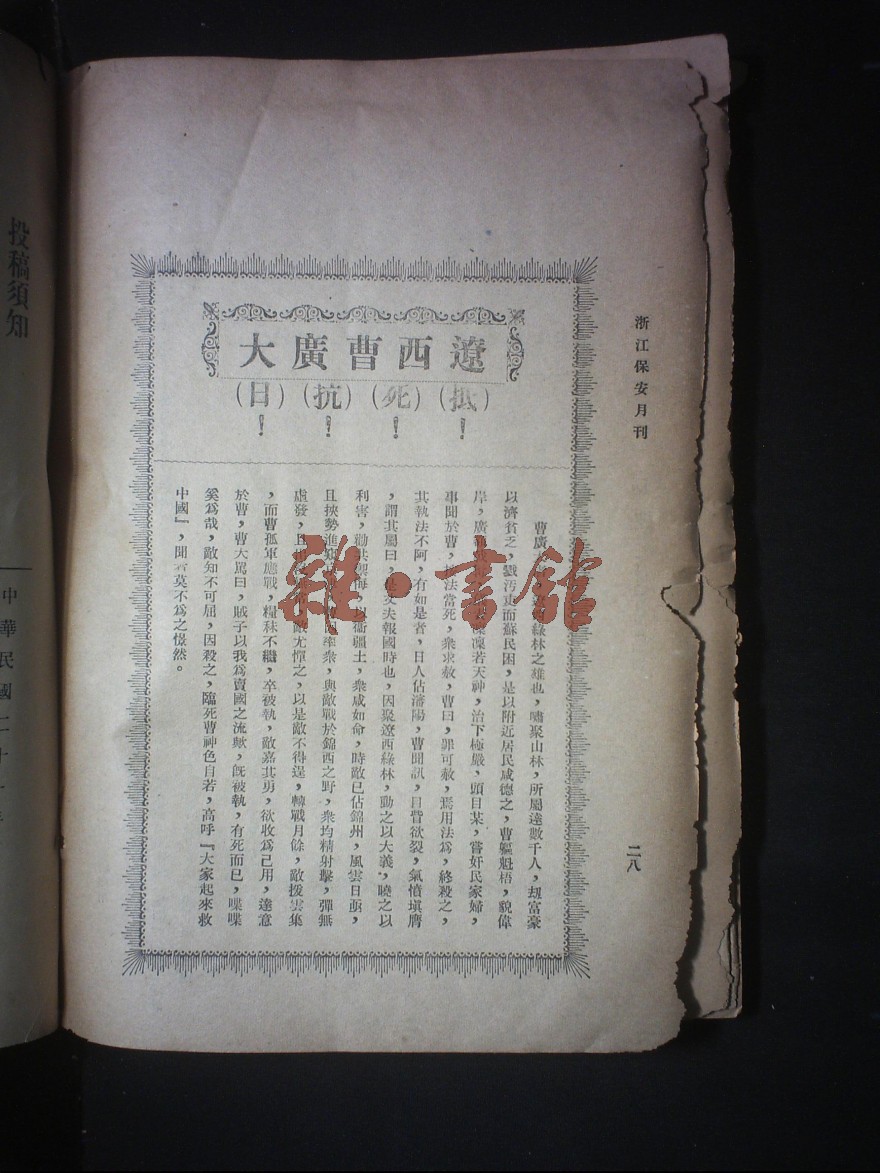 浙江保安月刊
二八
遼西曹廣大
(抵)(死)(抗)(日)
！！！！
曹廣 綠林之雄也，嘯聚山林，所屬達數千人，刧富豪
以濟貧乏，戮汚吏而蘇民困，是以附近居民咸德之，曹軀魁梧，貌偉
岸，廣 凜若天神，治下極嚴，頭目某，嘗奸民家婦，
事聞於曹， 法當死，衆求赦，曹曰，罪可赦，焉用法爲，終殺之，
其執法不阿，有如是者，日人佔瀋陽，曹聞訊，目眥欲裂，氣憤塡膺
，謂其屬曰，是丈夫報國時也，因聚遼西綠林，動之以大義，曉之以
利害，勸共禦侮，以衞疆土，衆咸如命，時敵已佔錦州，風雲日亟，
且挾勢進 率衆，與敵戰於錦西之野，衆均精射擊，彈無
虛發，且 敵尤憚之，以是敵不得逞，轉戰月餘，敵援雲集
，而曹孤軍應戰，糧秣不繼，卒被執，敵嘉其勇，欲收爲己用，達意
於曹，曹大罵曰，賊子以我爲賣國之流歟，旣被執，有死而已，喋喋
奚爲哉，敵知不可屈，因殺之，臨死曹神色自若，高呼『大家起來救
中國』，聞者莫不爲之憬然。
投稿須知
中華民國二十一年
雜·書館